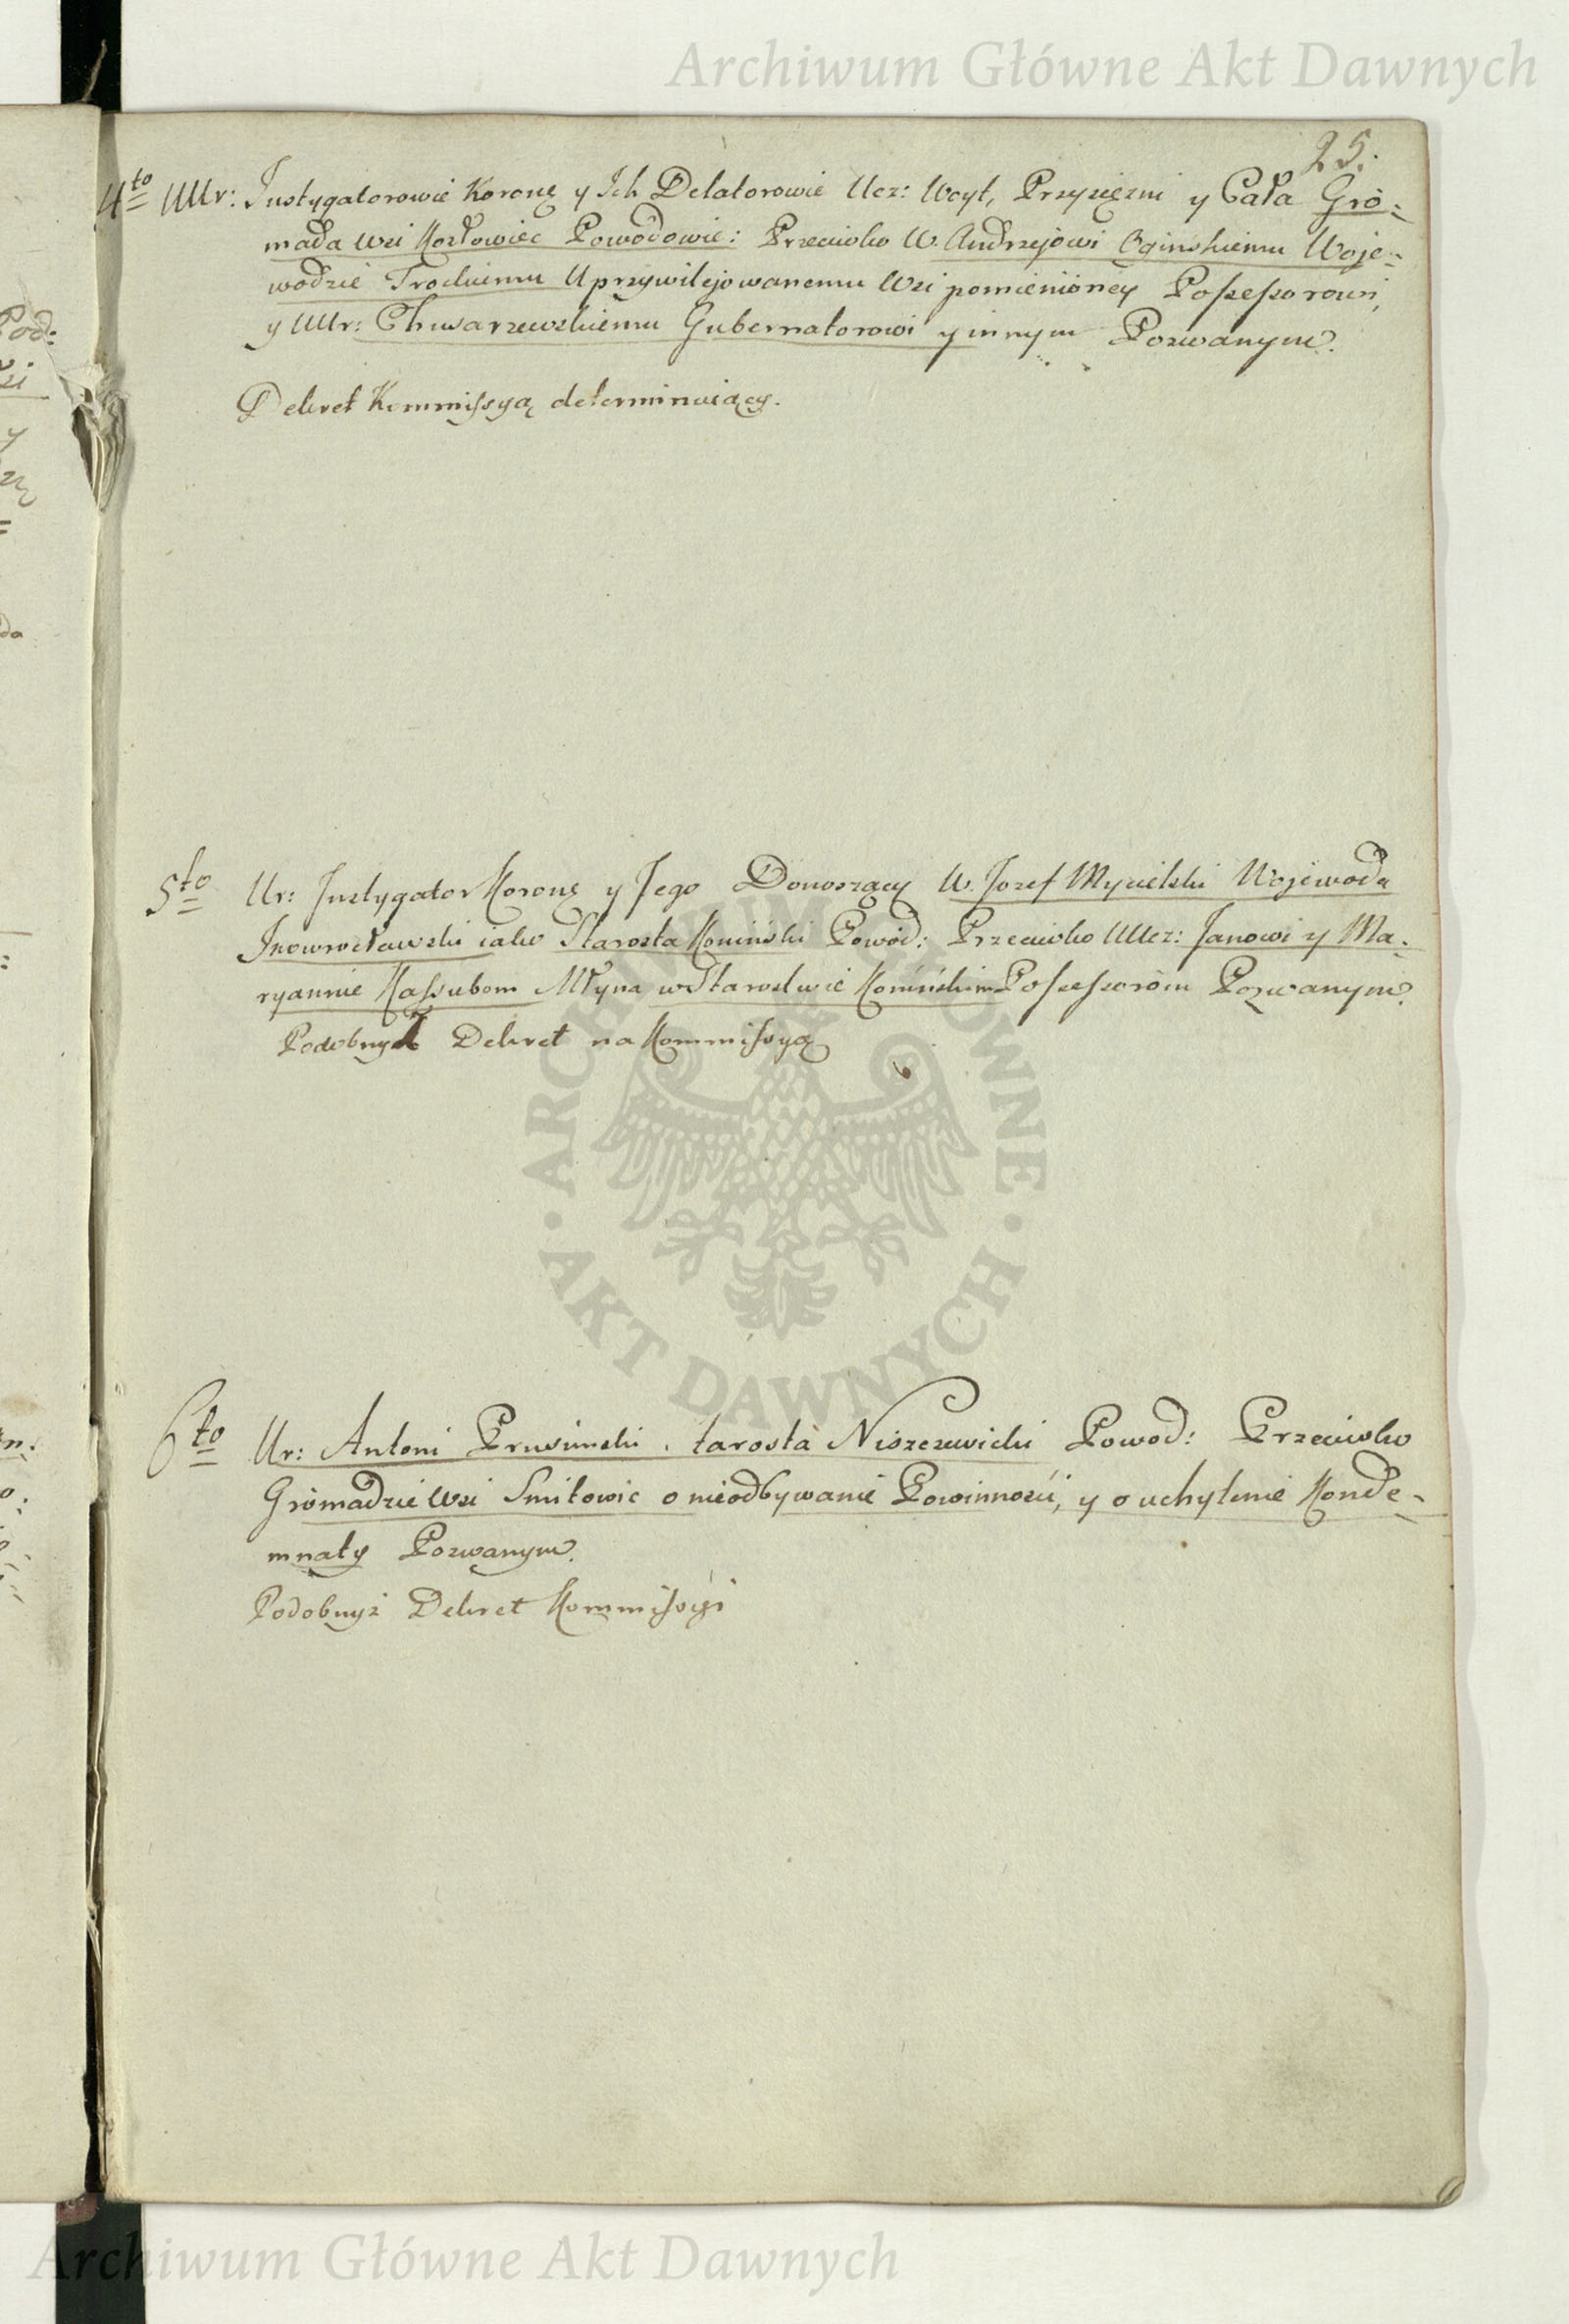 Archiwum Główne Akt Dawnych
25.
4to UUr: Instygatorowie Koronę y Ich Delatorowie Ucz: Woyt, Przysięzni y Cała Gro=
mada Wsi Kozłowiec Powodowie: Przeciwko W. Andrzejowi Oginskiemu Woje=
wodzie Trockiemu Uprzywilejowanemu Wsi pomienioney Possessorowi,
y UUr: Chwarzewskiemu Gubernatorowi y innym Pozwanym.
Dekret Kommissyą determinuiący.
5to Ur: Instygator Koronę y Jego Donoszący W. Jozef Mycielski Wojewoda
Inowrocławski iako Starosta Koninski Powod: Przeciwko UUcz: Janowi y Ma=
ryannie Kassubom Młyna w Starostwie Konińskim Possessorom Pozwanym.
Podobnyż Dekret na Kommissyą
6to Ur: Antoni Prusimski tarosta Niszczewicki Powod: Przeciwko
Gromadzie Wsi Smiłowic o nieodbywanie Powinnosci, y o uchylenie Konde=
mnaty Pozwanym.
Podobnyż Dekret Kommissyi
Pod:
y
ARCHIWUM GŁÓWNE · AKT DAWNYCH ·
Archiwum Główne Akt Dawnych